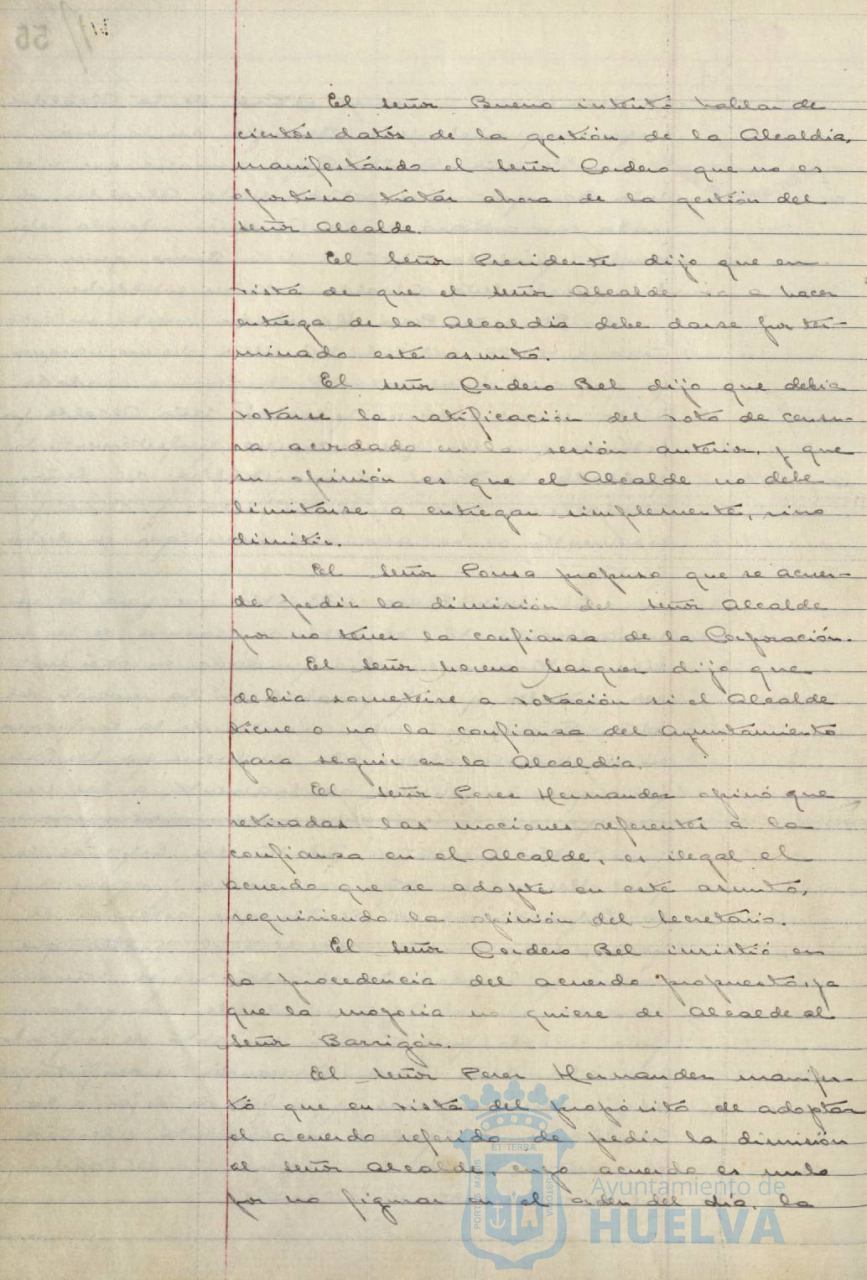 El señor Bueno intentó hablar de
ciertos datos de la gestión de la Alcaldia,
manifestándo el señor Cordero que no es
oportuno tratar ahora de la gestión del
señor Alcalde.
El señor Presidente dijo que en
vista de que el señor Alcalde va a hacer
entrega de la Alcaldia debe darse por ter-
minado este asunto.
El señor Cordero Bel dijo que debia
votarse la ratificación del voto de censu-
ra acordado en la sesión anterior, y que
su opinión es que el Alcalde no debe
limitarse a entregar simplemente, sino
dimitir.
El señor Ponsa propuso que se acuer-
de pedir la dimisión del señor Alcalde
por no tener la confianza de la Corporación.
El señor Moreno Marquez dijo que
debia someterse a votación si el Alcalde
tiene o no la confianza del Ayuntamiento
para seguir en la Alcaldia.
El señor Perez Hernandez opinó que
retiradas las mociones referentes a la
confianza en el Alcalde, es ilegal el
acuerdo que se adopte en este asunto,
requiriendo la opinión del Secretario.
El señor Cordero Bel insistió en
la procedencia del acuerdo propuesto, ya
que la mayoria no quiere de Alcalde al
señor Barrigón.
El señor Perez Hernandez manifes-
tó que en vista del propósito de adoptar
el acuerdo referido de pedir la dimisión
al señor Alcalde, cuyo acuerdo es nulo
por no figurar en el orden del dia, la
Ayuntamiento de
HUELVA